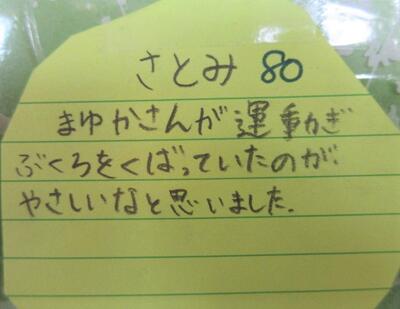 さとみ 80
まゆかさんが運動ぎ
ぶくろをくばっていたのが
やさしいなと思いました.